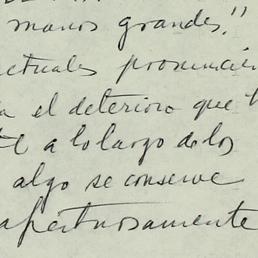 manos grandes."
ctuales
a el deterioro que
a lo largo de los
algo se conserve
apertuosamente